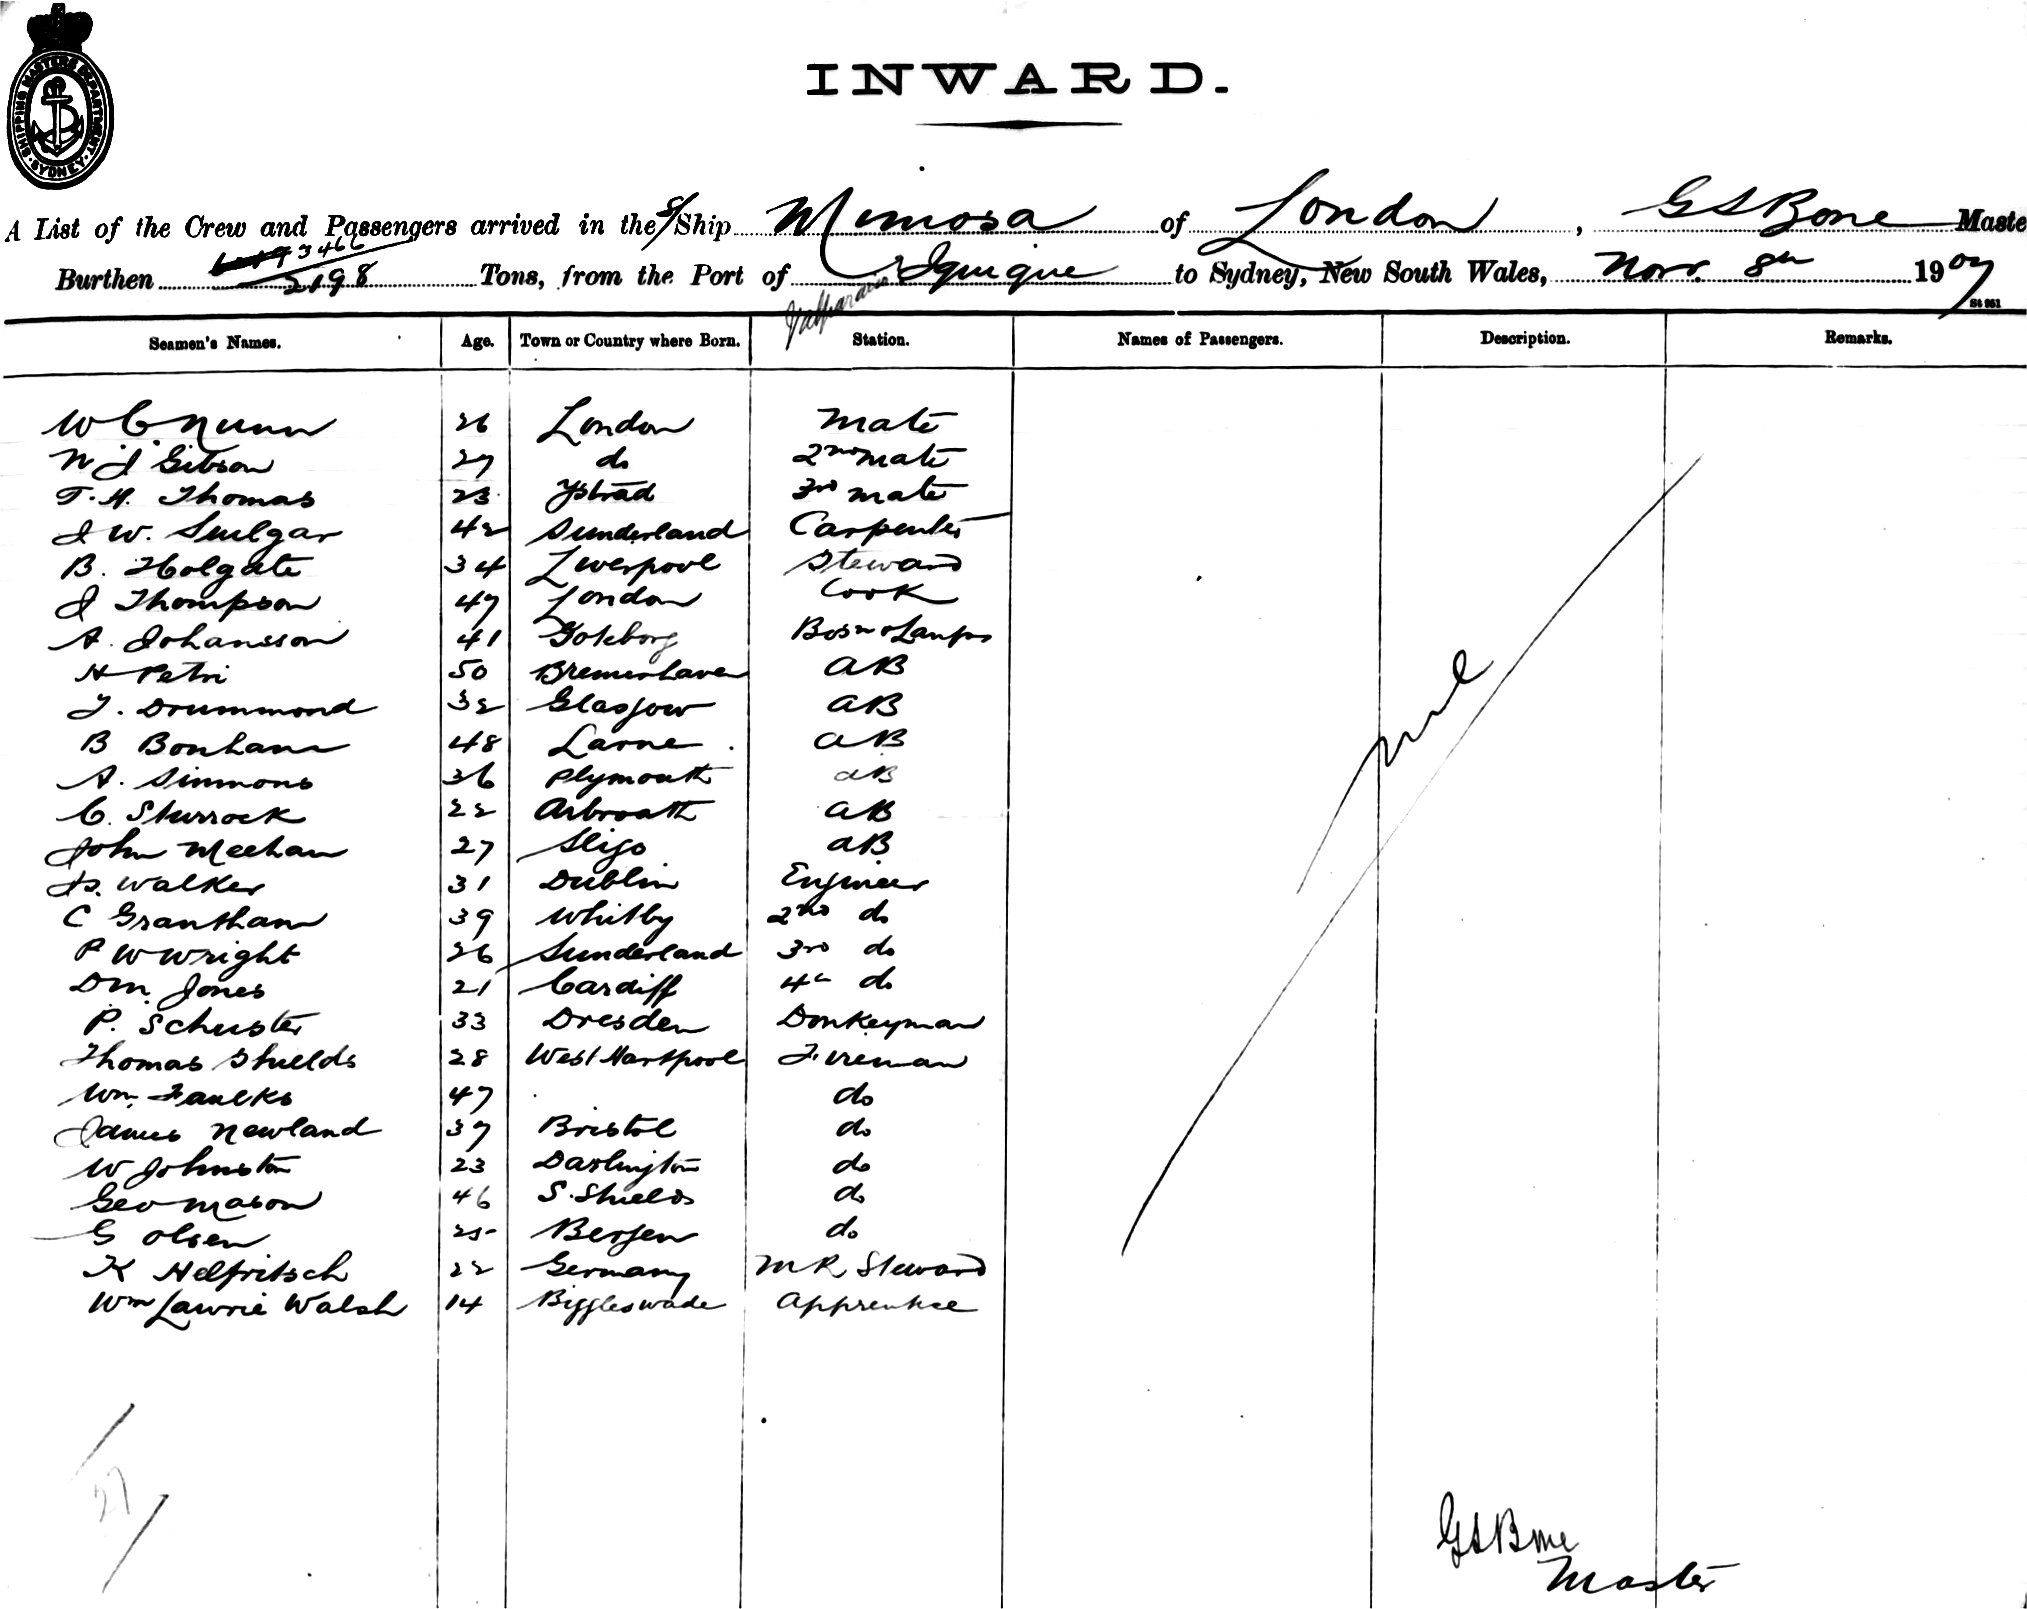 SHIPPING MASTERS DEPARTMENT · SYDNEY ·
INWARD.
A List of the Crew and Passengers arrived in the S/Ship Mimosa of London, G S Bone Maste
3466
Burthen 2198 Tons, from the Port of Iquique to Sydney, New South Wales, Novr. 8th 1907
Valparaiso
St 951
Seamen's Names. Age. Town or Country where Born. Station. Names of Passengers. Description. Remarks.
W C Nunn 26 London Mate
W J Gibson 27 do 2nd Mate
T. H. Thomas 23 Ystrad 3rd Mate
J W. 42 Sunderland Carpenter
B. Holgate 34 Liverpool Steward
J Thompson 47 London Cook
A. Johansson 41 Goteborg Bosn & Lamps
H Petri 50 Bremerhaven AB
J. Drummond 32 Glasgow AB
B Bonham 48 Larne AB
A. Simmons 36 Plymouth AB
C. Sturrock 22 Arbroath AB
John Meehan 27 Sligo AB
Walker 31 Dublin Engineer
C Grantham 39 Whitby 2nd do
P W Wright 26 Sunderland 3rd do
D M. Jones 21 Cardiff 4th do
P. Schuster 33 Dresden Donkeyman
Thomas Shields 28 West Hartpool Fireman
Wm. Faulks 47 do
James Newland 37 Bristol do
W Johnston 23 Darlington do
Geo Mason 46 S. Shields do
G Olsen 25 Bergen do
K Helfritsch 22 Germany M R Steward
Wm Lawrie Walsh 14 Biggleswade Apprentice
nil
27
G S Bone
Master